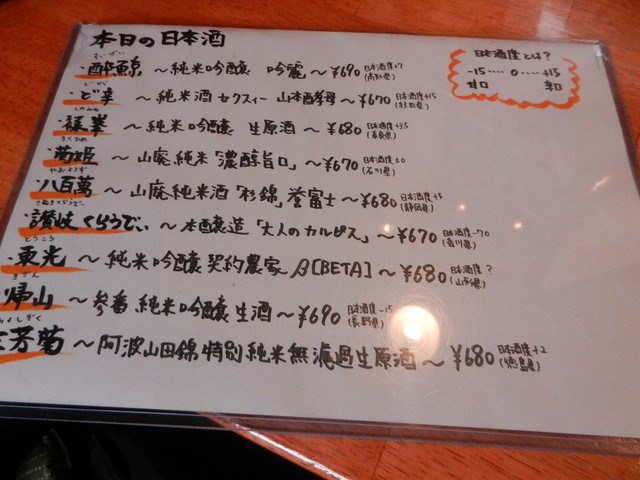 本日の日本酒
日本酒度とは?
-15‥‥0‥‥+15
甘口 辛口
すいげい
・酔鯨 ~純米吟醸 吟麗~¥690 日本酒度+7
(高知県)
・ど辛 ~純米酒 セクフィー 山本酵母~¥670 日本酒度+15
(秋田県)
~純米吟醸 生原酒~¥680 日本酒度+3.5
きくひめ
・菊姫 ~山廃純米「濃醇旨口」~¥670 日本酒度±0
(石川県)
やおよろず
八百萬 ~山廃純米酒「杉錦」誉富士~¥680 日本酒度+5
(静岡県)
さぬきくらうでぃ
讃岐くらうでぃ ~本醸造「大人のカルピス」~¥670 日本酒度-70
(香川県)
とうこう
・東光 ~純米吟醸 契約農家 β[BETA]~¥680 日本酒度?
(山形県)
きざん
帰山 ~参番 純米吟醸 生酒~¥690 日本酒度-15
(長野県)
よしきく
芳菊 ~阿波山田錦 特別純米無濾過生原酒~¥680 日本酒度+2
(徳島県)